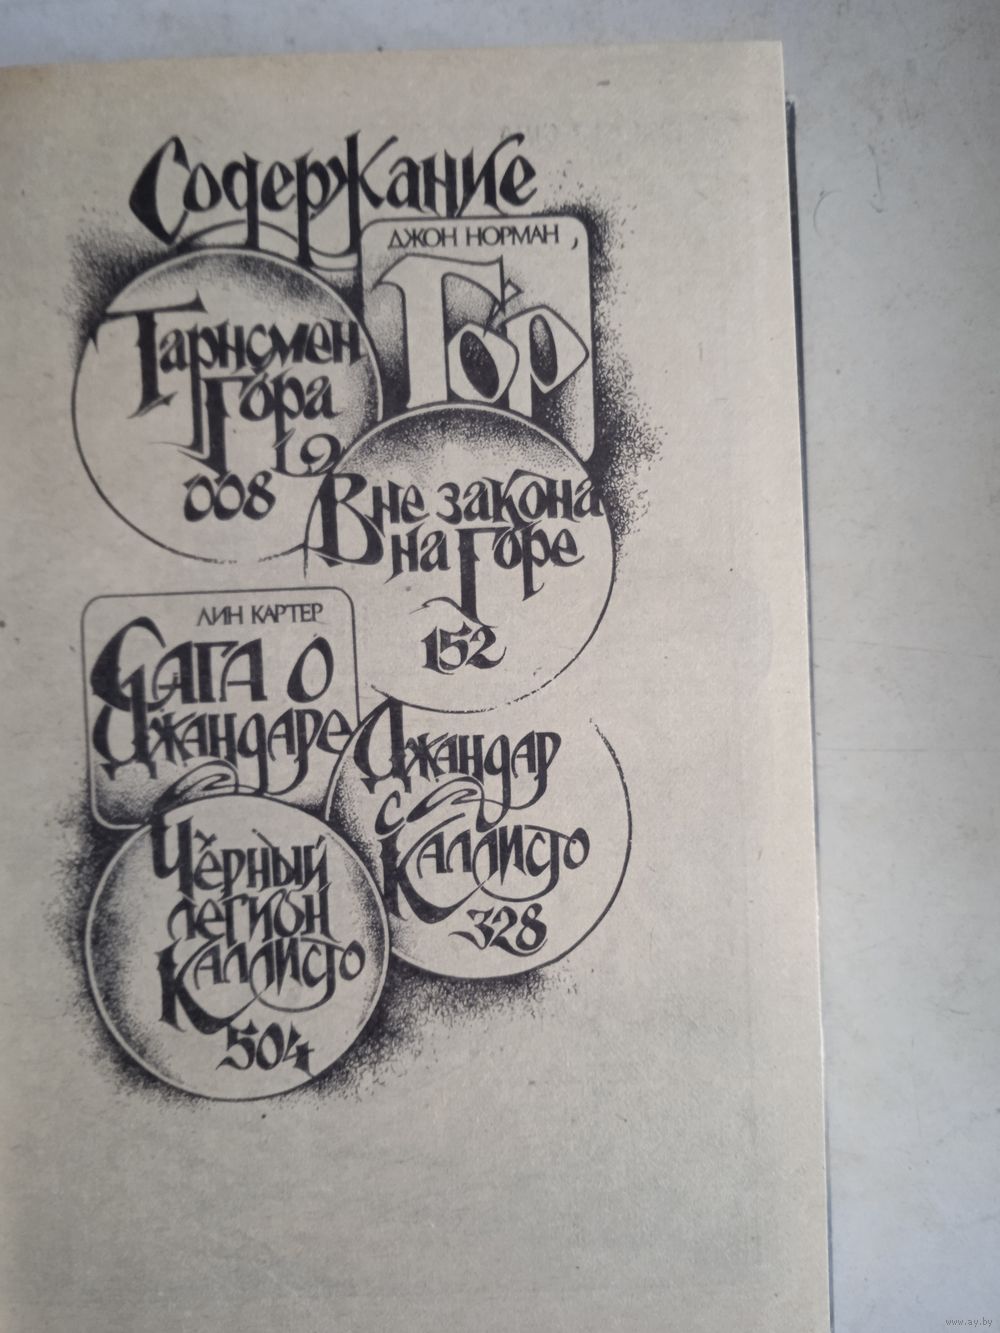 Содержание
ДЖОН НОРМАН
Гор
Тарнсмен
Гора
008
Вне закона
на Горе
152
ЛИН КАРТЕР
Сага о
Джандаре
Джандар
с
Каллисто
328
Чёрный
легион
Каллисто
504
www.ay.by